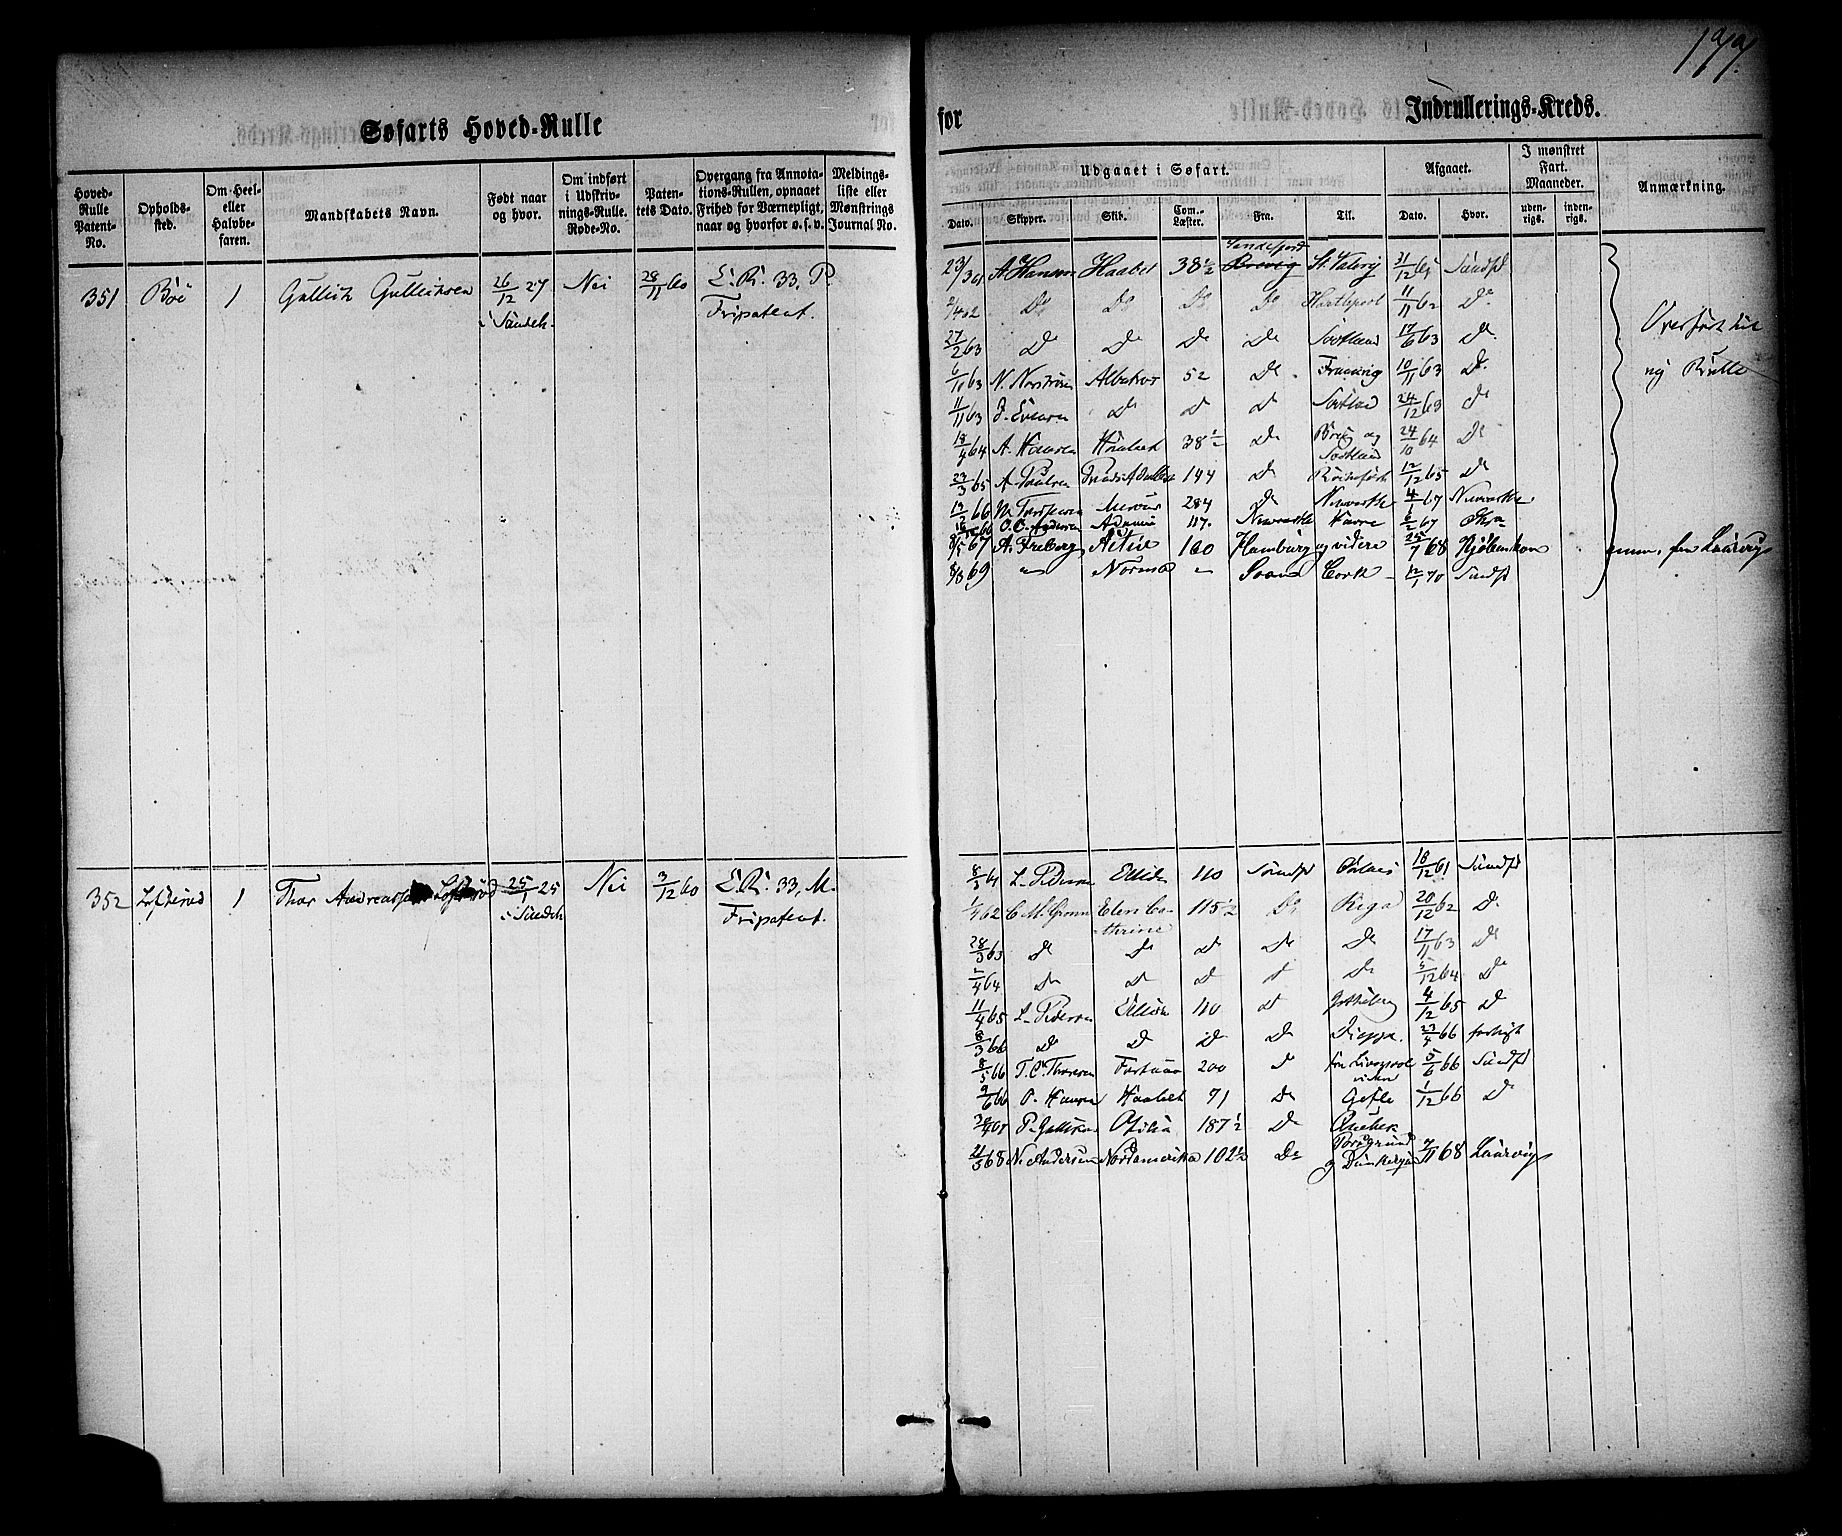 177.
Søfarts Hoved-Rulle
for
Indrullerings-Kreds.
Hoved-Rulle Patent-No.
Opholds-sted.
Om Heel- eller Halvbe-faren.
Mandskabets Navn.
Født naar og hvor.
Om indført i Udskriv-nings-Rulle. Rode-No.
Paten-tets Dato.
Overgang fra Annota-tions-Rullen, opnaaet Frihed for Værnepligt, naar og hvorfor o. s. v.
Meldings-liste eller Mønstrings Journal No.
Udgaaet i Søfart.
Dato. Skipper. Skib. Com.-Læster. Fra. Til.
Afgaaet.
Dato. Hvor.
I mønstret Fart. Maaneder.
uden-rigs. inden-rigs.
Anmærkning.
351 Böe 1 Gullich Gullichsen 26/12 27 Nei 28/11 60 E. R. 33, P.
i Sandeh. Fripatent.
Sandefjord
23/3 61 A. Hansen Haabet 38 1/2 St. Valery 31/12 61 Sandfd
2/4 62 Do Do Do Do Hartlepool 11/11 62 Do
27/2 63 Do Do Do Do Skotland 17/6 63 Do
Overført til
ny Rulle
6/10 63 N. Albatros 52 Do 10/11 63 Do
11/11 63 Do Do Do 24/12 63 Do
18/4 64 A. Hansen Haabet 38 1/2 Do og 24/10 64 Do
Skotland
23/3 65 A. Paulsen 144 Do 12/12 65 Do
284 Do Newcastle 4/2 67 Newcastle
O. C. Andersen 117. Newcastle Havre
8/5 67 A. Freberg 160 Hamburg og videre 25/7 68 Kjøbenhavn anm. fra Laurvig
8/8 69 " Norma " Cork 12/1 70 Sandfd
352 1 Thor Andreassen 25/1 25 Nei 3/12 60 E. R. 33, M.
i Sandeh Fripatent.
8/3 61 L. Pedersen Ellida 110 Sandfd 18/12 61 Sandfd
1/4 62 C. M. Elen Ca- 115 1/2 Do Riga 20/12 62 Do
thrine
28/3 63 Do Do Do Do Do 17/11 63 Do
2/4 64 Do Do Do Do Do 5/12 64 Do
11/4 65 L. Pedersen Ellida 110 Do 4/12 65 Do
8/3 66 Do Do Do Do Dieppe. 23/4 66
8/5 66 T. C. Thoresen Fortuna 200 Do fra Liverpool 5/6 66 Sandfd
9/6 66 Hansen Haabet 71 Do Gefle 1/12 66 Do
P. Gullichsen Otilia 187 1/2 Do Quebec
Porsgrund
21/3 68 N. Andersen Nordamerika 102 1/2 Do og Dünkerque 7/11 68 Laurvig